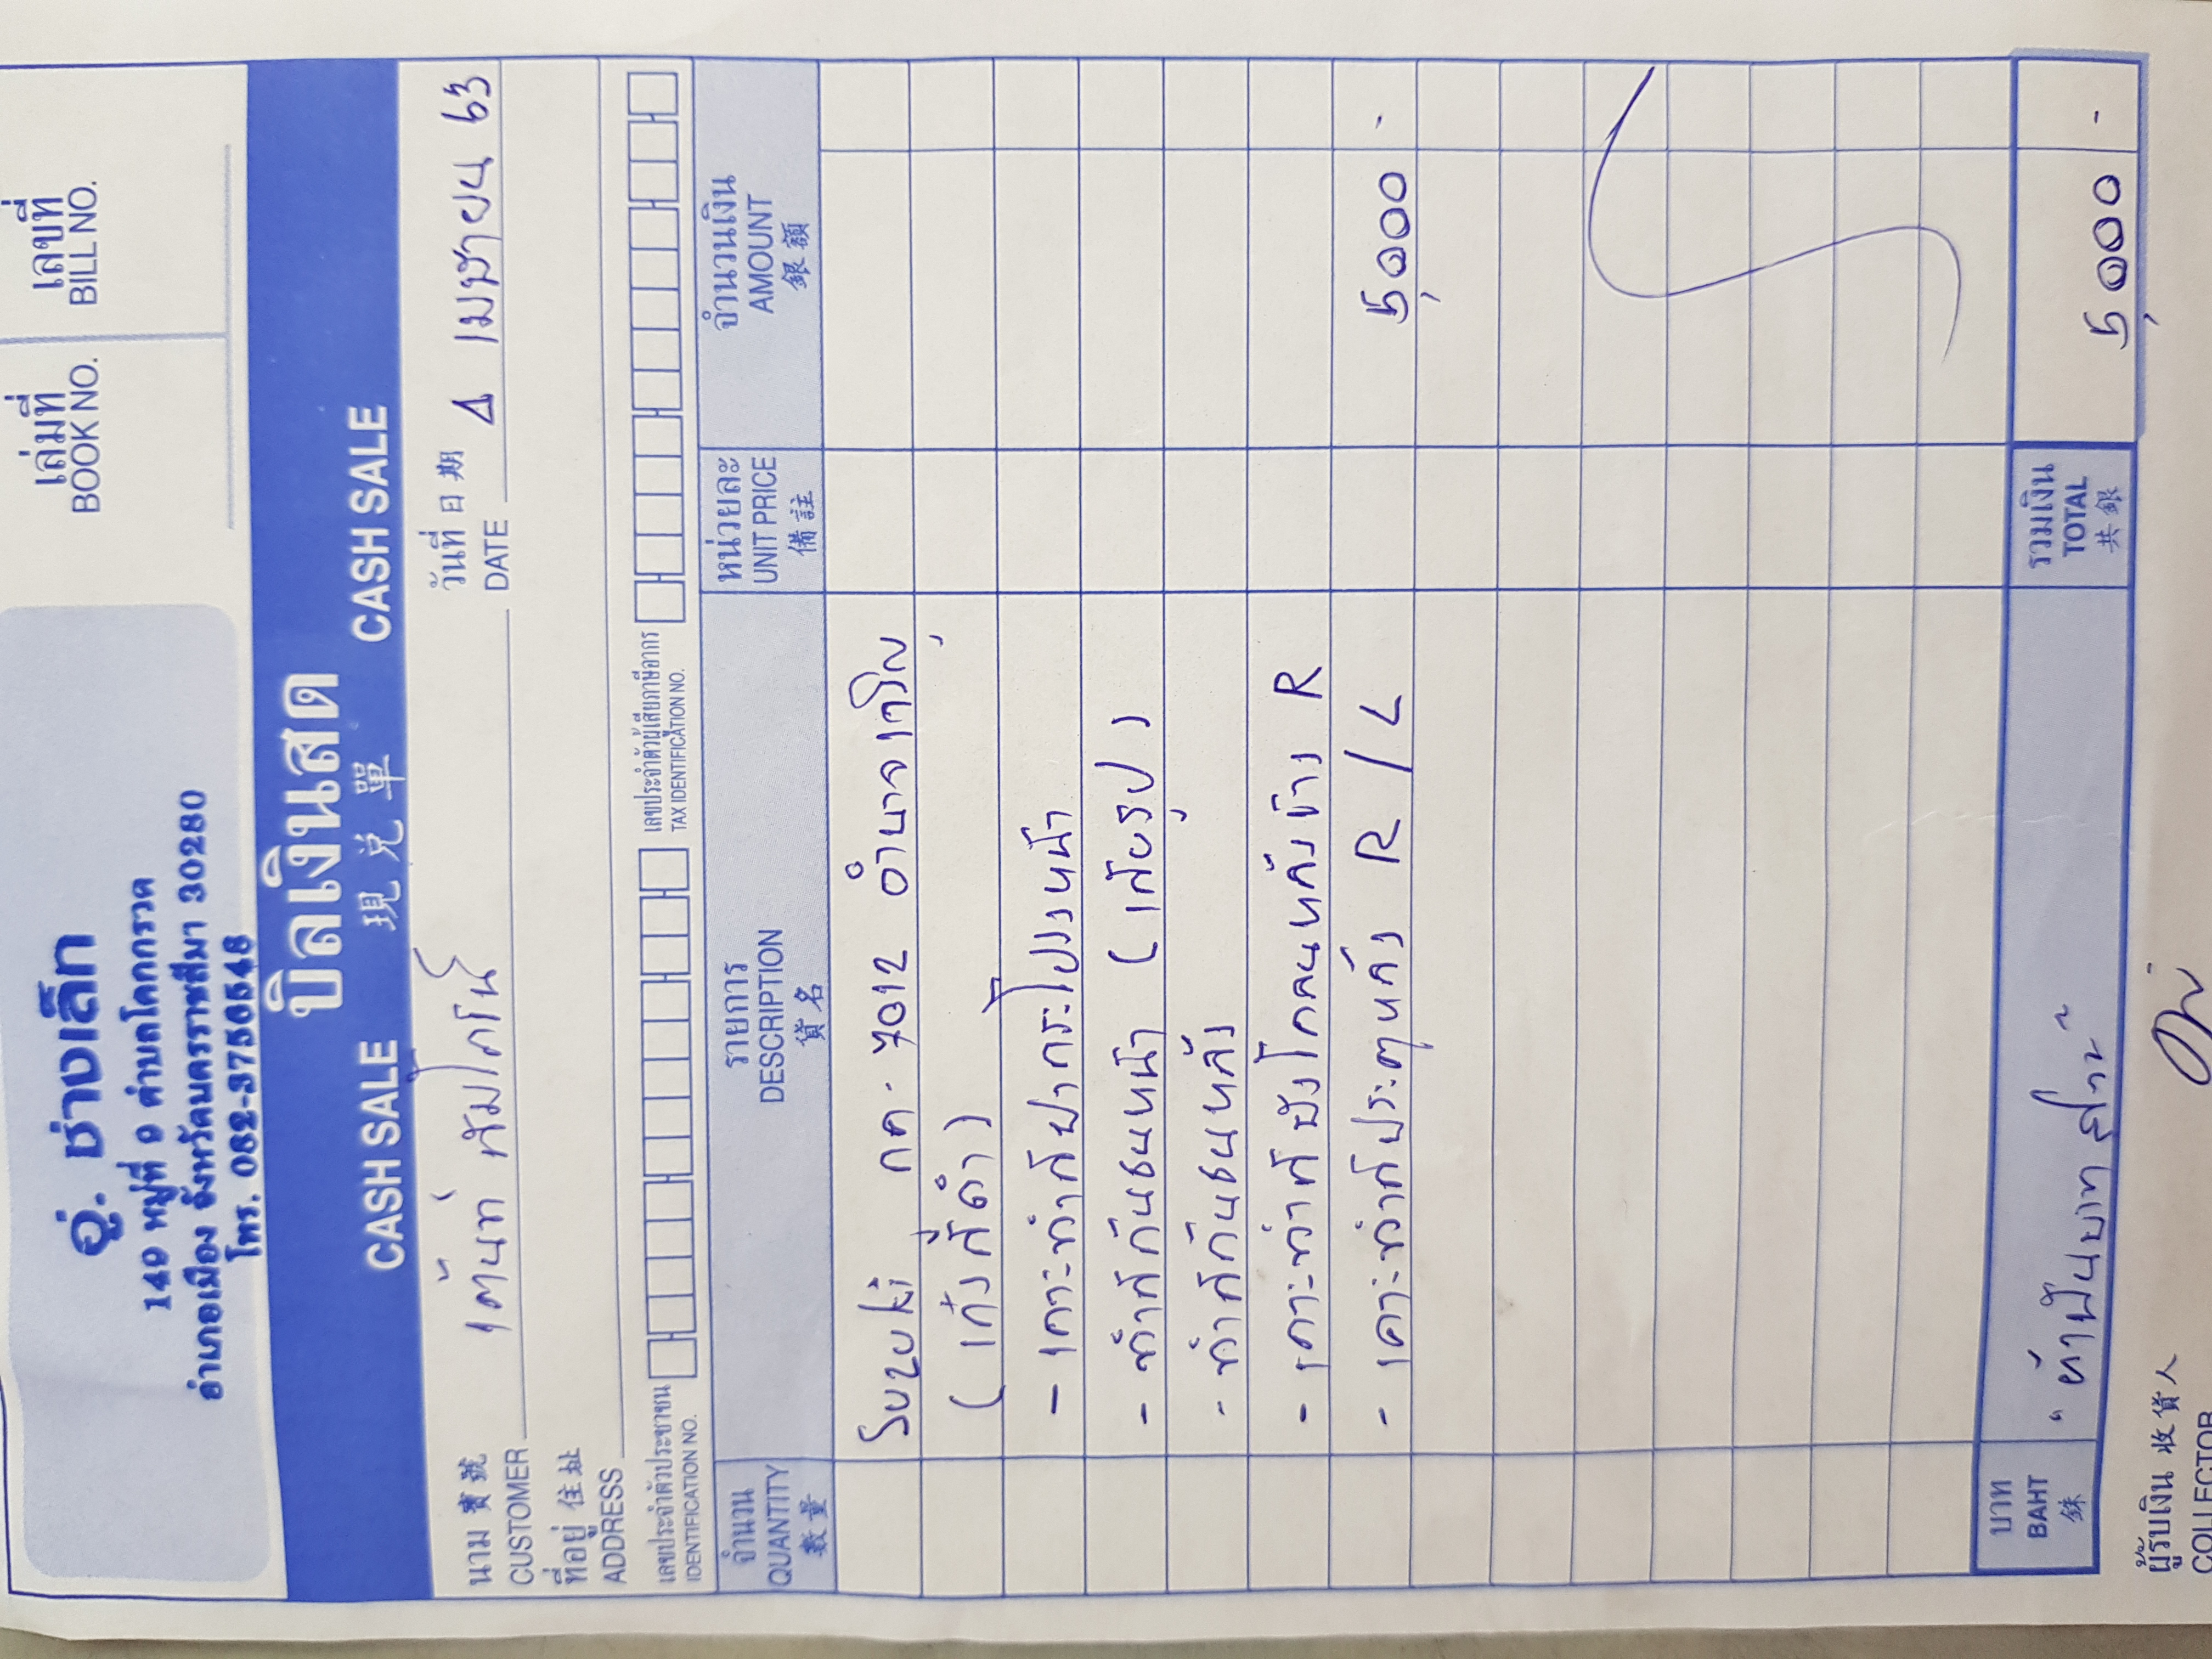 เล่มที่ เลขที่
BOOK NO. BILL NO.
อู่. ช่างเล็ก
149 หมู่ที่ 9 ตำบลโคกกรวด
อำเภอเมือง จังหวัดนครราชสีมา 30280
โทร. 082-3756548
บิลเงินสด
CASH SALE 現兌單 CASH SALE
นาม 賓號 วันที่ 日期
CUSTOMER เต้นท์ DATE 4 เมษายน 63
ที่อยู่ 住址
ADDRESS
เลขประจำตัวประชาชน เลขประจำตัวผู้เสียภาษีอากร
IDENTIFICATION NO. TAX IDENTIFICATION NO.
จำนวน รายการ หน่วยละ จำนวนเงิน
QUANTITY DESCRIPTION UNIT PRICE AMOUNT
數量 貨名 備註 銀額
Suzuki กค - 7012 อำนาจเจริญ
( เก๋งสีดำ )
- เคาะทำสีฝากระโปรงหน้า
- ทำสีกันชนหน้า ( เสียรูป )
- ทำสีกันชนหลัง
- เคาะทำสีบังโคลนหลังข้าง R
- เคาะทำสีประตูหลัง R / L 5,000 -
บาท รวมเงิน
BAHT " ห้าพันบาทถ้วน " TOTAL 5,000 -
銖 共銀
ผู้รับเงิน 收貨人
COLLECTOR